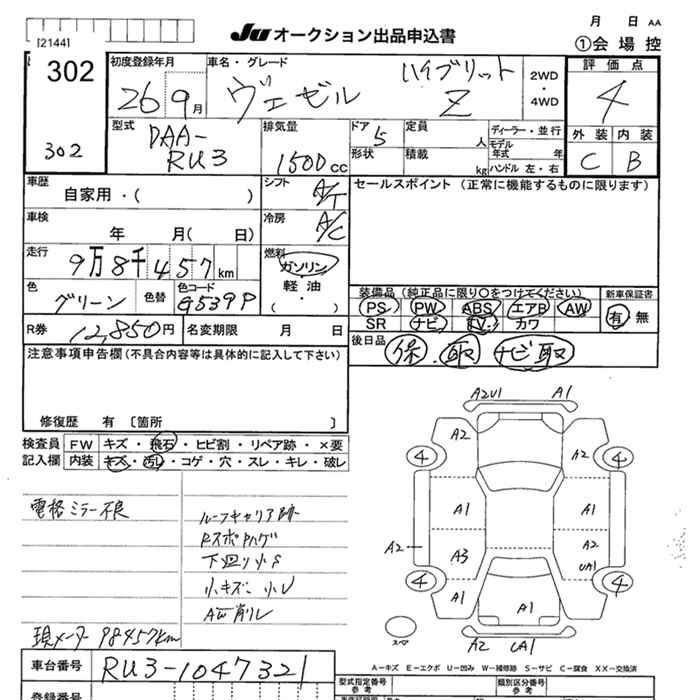 [2144]
JU オークション出品申込書
月 日 AA
①会場控
302
302
初度登録年月
26 9月
車名・グレード
ヴェゼル ハイブリット Z
2WD
・
4WD
評価点
4
外装 内装
C B
型式
DAA-
RU3
排気量
1500cc
ドア 5
形状
定員 人
積載 kg
ディーラー・並行
モデル
年式 年
ハンドル 左・右
車歴
自家用・( )
シフト A/T
セールスポイント (正常に機能するものに限ります)
車検
年 月( 日)
冷房 A/C
走行
9万8千457km
燃料
ガソリン
軽油
( ・ )
色
グリーン
色替
色コード
G539P
装備品 (純正品に限り○をつけてください)
PS PW ABS エアB AW
SR ナビ TV カワ
新車保証書
有 無
R券 12,850円
名変期限 月 日
後日品 保 取 ナビ取
注意事項申告欄(不具合内容等は具体的に記入して下さい)
修復歴 有 〔箇所 〕
検査員
記入欄
FW キズ・飛石・ヒビ割・リペア跡・×要
内装 キズ・汚れ・コゲ・穴・スレ・キレ・破レ
電格ミラー不良
ルーフキャリア跡
Rスポハゲ
下廻り小S
小キズ、小U
AW削レ
現メーター 98457km
A2U1 A1
A2
4 4
A1 A1
A2 A3 A2
UA1
4 4
A1 A1 A1
スマ
A2 UA1
A−キズ E−エクボ U−凹み W−補修跡 S−サビ C−腐食 XX−交換済
車台番号 RU3-1047321
登録番号
型式指定番号
参考
類別区分番号
参考